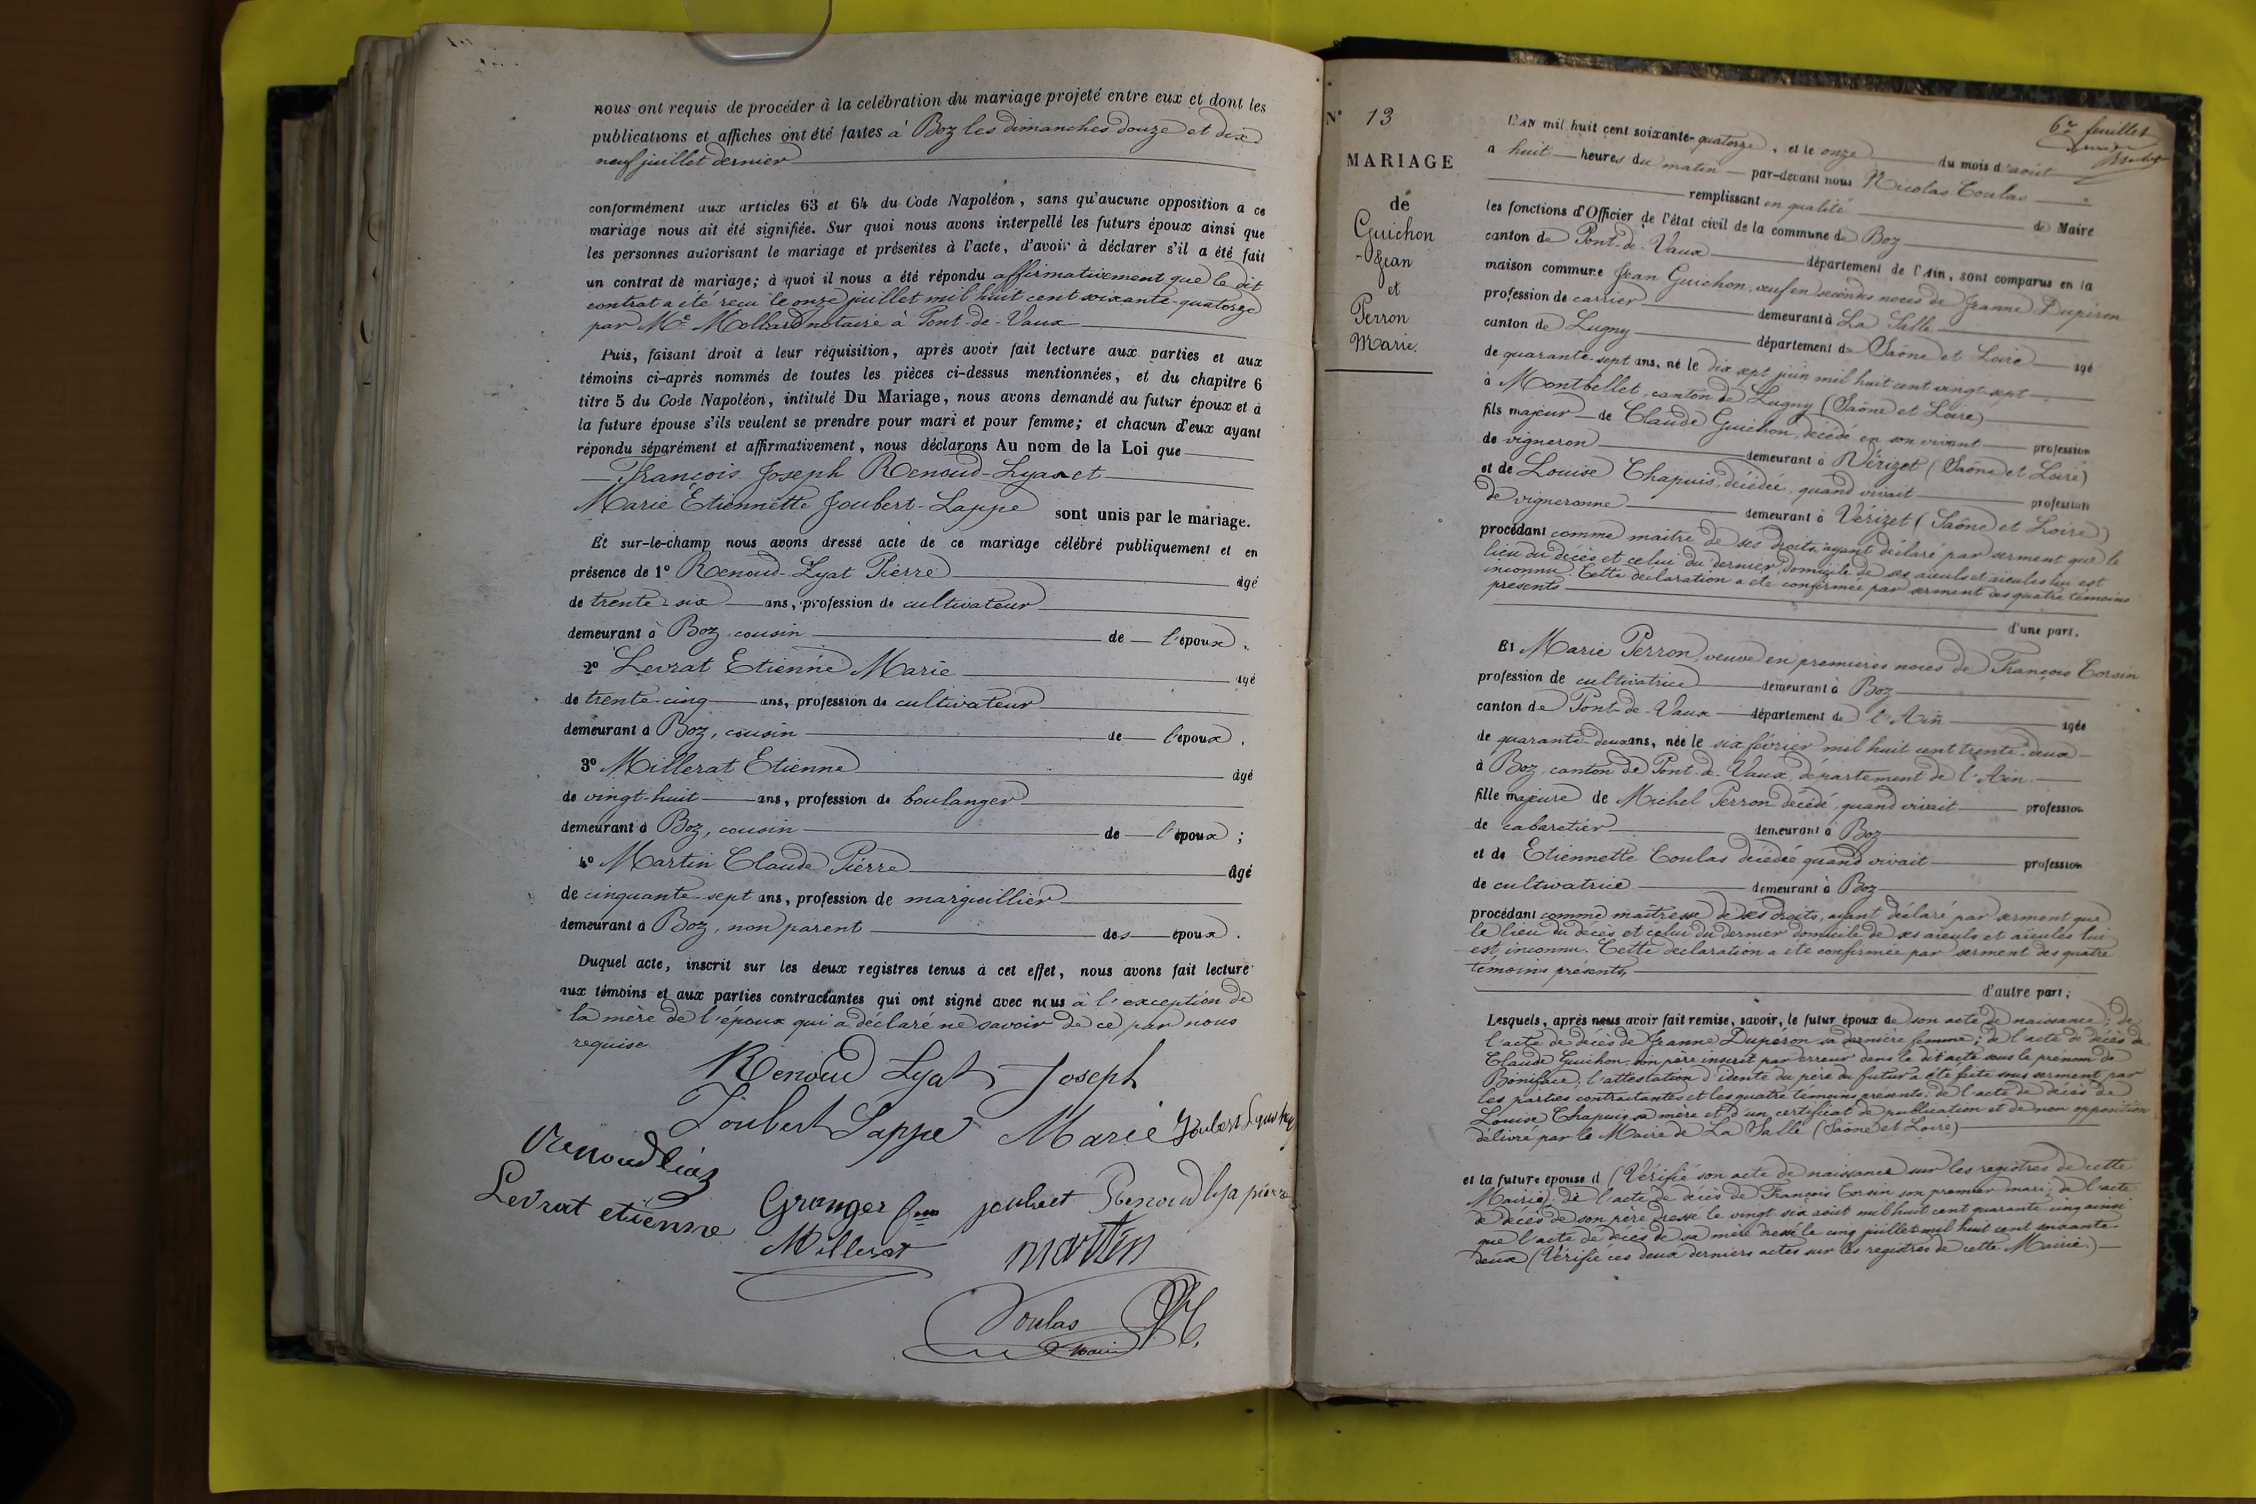 nous ont requis de procéder à la celébration du mariage projeté entre eux et dont les
publications et affiches ont été faites à Boz les dimanches douze et dix
neuf juillet dernier
conformément aux articles 63 et 64 du Code Napoléon, sans qu'aucune opposition a ce
mariage nous ait été signifiée. Sur quoi nous avons interpellé les futurs époux ainsi que
les personnes autorisant le mariage et présentes à l'acte, d'avoir à déclarer s'il a été fait
un contrat de mariage; à quoi il nous a été répondu affirmativement que le dit
contrat a été reçu le onze juillet mil huit cent soixante-quatorze
par Me Mollard notaire à Pont-de-Vaux
Puis, faisant droit à leur réquisition, après avoir fait lecture aux parties et aux
témoins ci-après nommés de toutes les pièces ci-dessus mentionnées, et du chapitre 6
titre 5 du Code Napoléon, intitulé Du Mariage, nous avons demandé au futur époux et à
la future épouse s'ils veulent se prendre pour mari et pour femme; et chacun d'eux ayant
répondu séparément et affirmativement, nous déclarons Au nom de la Loi que
François Joseph Renoud-Lyat et
Marie Étiennette Joubert-Lappe sont unis par le mariage.
Et sur-le-champ nous avons dressé acte de ce mariage célébré publiquement et en
présence de 1º Renoud-Lyat Pierre âgé
de trente-six ans, profession de cultivateur
demeurant à Boz, cousin de l'époux.
2º Levrat Etienne Marie âgé
de trente-cinq ans, profession de cultivateur
demeurant à Boz, cousin de l'époux.
3º Millerat Etienne âgé
de vingt-huit ans, profession de boulanger
demeurant à Boz, cousin de l'époux;
4º Martin Claude Pierre âgé
de cinquante-sept ans, profession de marguillier
demeurant à Boz, non parent des époux.
Duquel acte, inscrit sur les deux registres tenus à cet effet, nous avons fait lecture
aux témoins et aux parties contractantes qui ont signé avec nous à l'exception de
la mère de l'époux qui a déclaré ne savoir de ce par nous
requise
Renoud Lyat Joseph
Joubert Lappe Marie Joubert
Renoud liaz
Levrat etienne Granger joubert Renoud lya pierre
Millerat martin
Coulas
Maire
Nº 13
MARIAGE
de
Guichon
Jean
et
Perron
Marie.
6e feuillet
L'AN mil huit cent soixante-quatorze, et le onze du mois d'août
a huit heures du matin par-devant nous Nicolas Coulas
remplissant en qualité de Maire
les fonctions d'Officier de l'état civil de la commune de Boz
canton de Pont-de-Vaux département de l'Ain, sont comparus en la
maison commune Jean Guichon, veuf en secondes noces de Jeanne Dupiron
profession de carrier demeurant à La Salle
canton de Lugny département de Saône et Loire âgé
de quarante-sept ans, né le dix sept juin mil huit cent vingt-sept
à Montbellet, canton de Lugny (Saône et Loire)
fils majeur de Claude Guichon, décédé en son vivant profession
de vigneron demeurant à Vérizet (Saône et Loire)
et de Louise Chapuis, décédée, quand vivait profession
de vigneronne demeurant à Vérizet (Saône et Loire)
procédant comme maître de ses droits, ayant déclaré par serment que le
lieu du décès et celui du dernier domicile de ses aïeuls et aïeules lui est
inconnu. Cette déclaration a été confirmée par serment des quatre témoins
présents
d'une part.
Et Marie Perron, veuve en premières noces de François Corsin
profession de cultivatrice demeurant à Boz
canton de Pont-de-Vaux département de l'Ain âgée
de quarante-deux ans, née le six février mil huit cent trente-deux
à Boz, canton de Pont-de-Vaux, département de l'Ain
fille majeure de Michel Perron décédé, quand vivait profession
de cabaretier demeurant à Boz
et de Etiennette Coulas décédée quand vivait profession
de cultivatrice demeurant à Boz
procédant comme maîtresse de ses droits, ayant déclaré par serment que
le lieu du décès et celui du dernier domicile de ses aïeuls et aïeules lui
est inconnu. Cette déclaration a été confirmée par serment des quatre
témoins présents,
d'autre part;
Lesquels, après nous avoir fait remise, savoir, le futur époux de son acte de naissance; de
l'acte de décès de Jeanne Duperon sa dernière femme; de l'acte de décès de
Claude Guichon son père inscrit par erreur dans le dit acte sous le prénom de
Boniface; l'attestation d'identé du père du futur a été faite sous serment par
les parties contractantes et les quatre témoins présents; de l'acte de décès de
Louise Chapuis sa mère et d'un certificat de publication et de non opposition
délivré par le Maire de La Salle (Saône et Loire)
et la future épouse d (Vérifié son acte de naissance sur les registres de cette
Mairie), de l'acte de décès de François Corsin son premier mari; de l'acte
de décès de son père dressé le vingt six août mil huit cent quarante cinq ainsi
que l'acte de décès de sa mère dressé le cinq juillet mil huit cent soixante-
deux (Vérifié ces deux derniers actes sur les registres de cette Mairie.)